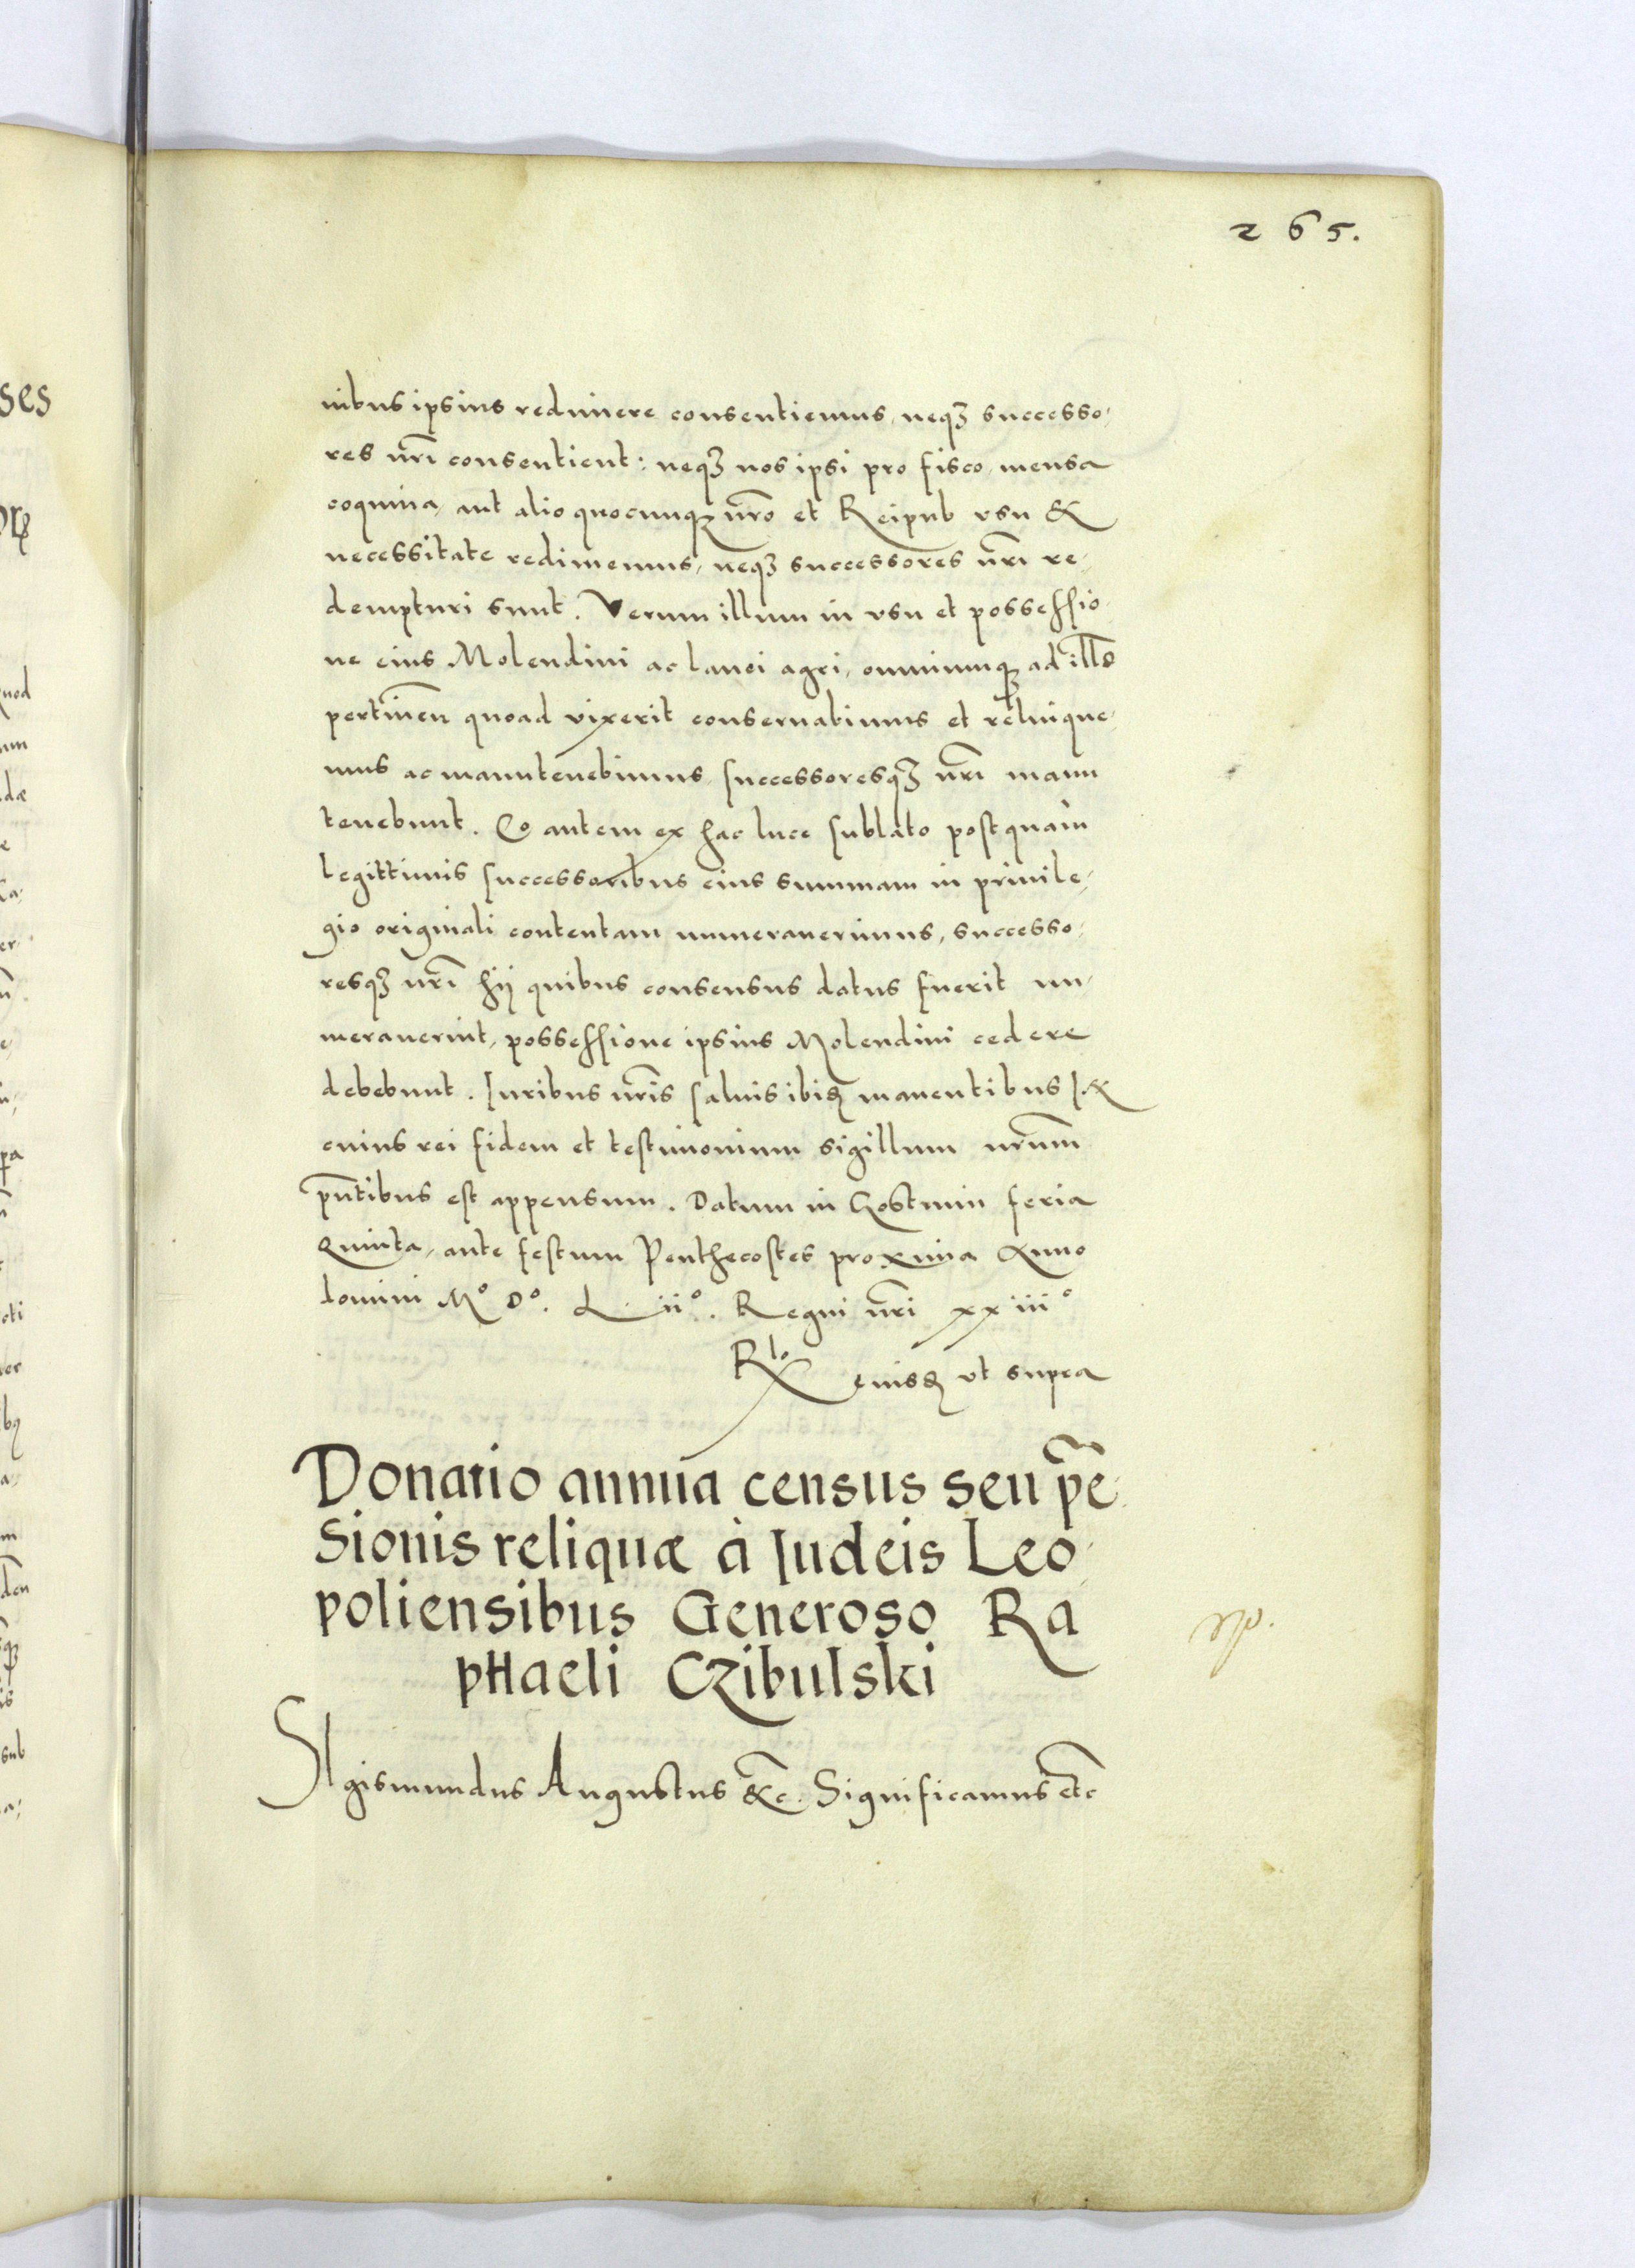 265.
nibus ipsius redimere consentiemus, neqꝫ successo,
res nr̃i consentient: neqꝫ nos ipsi pro fisco, mensa
coquina, aut alio quocunqꝫ nr̃o et Reipub vsu &
necessitate redimemus, neqꝫ successores nr̃i re,
dempturi sunt. Verum illum in vsu et possessio,
ne eius Molendini ac lanei agri, omniumqꝫ ad ill̃o
pertineñ quoad vixerit conseruabimus et relinque,
mus ac manutenebimus successoresqꝫ nr̃i manu
tenebunt. Eo autem ex hac luce sublato postquàm
legittimis successoribus eius summam in priuile,
gio originali contentam numerauerimus, successo,
resqꝫ nr̃i hij quibus consensus datus fuerit nu,
merauerint, possessione ipsius Molendini cedere
debebunt. Iuribus nr̃is saluis ibidem manentibus In
cuius rei fidem et testimonium sigillum nr̃um
pñtibus est appensum. Datum in Gostinin feria
Quinta, ante festum Penthecostes proxima Anno
domini Mº Dº. L iiº. Regni nr̃i xxiiiº
Rlº eiusdꝫ vt supra
Donatio annua census seu pẽ,
sionis reliquæ à Iudeis Leo,
poliensibus Generoso Ra
pHaeli Czibulski
SIgismundus Augustus &c̃. Significamus etc̃